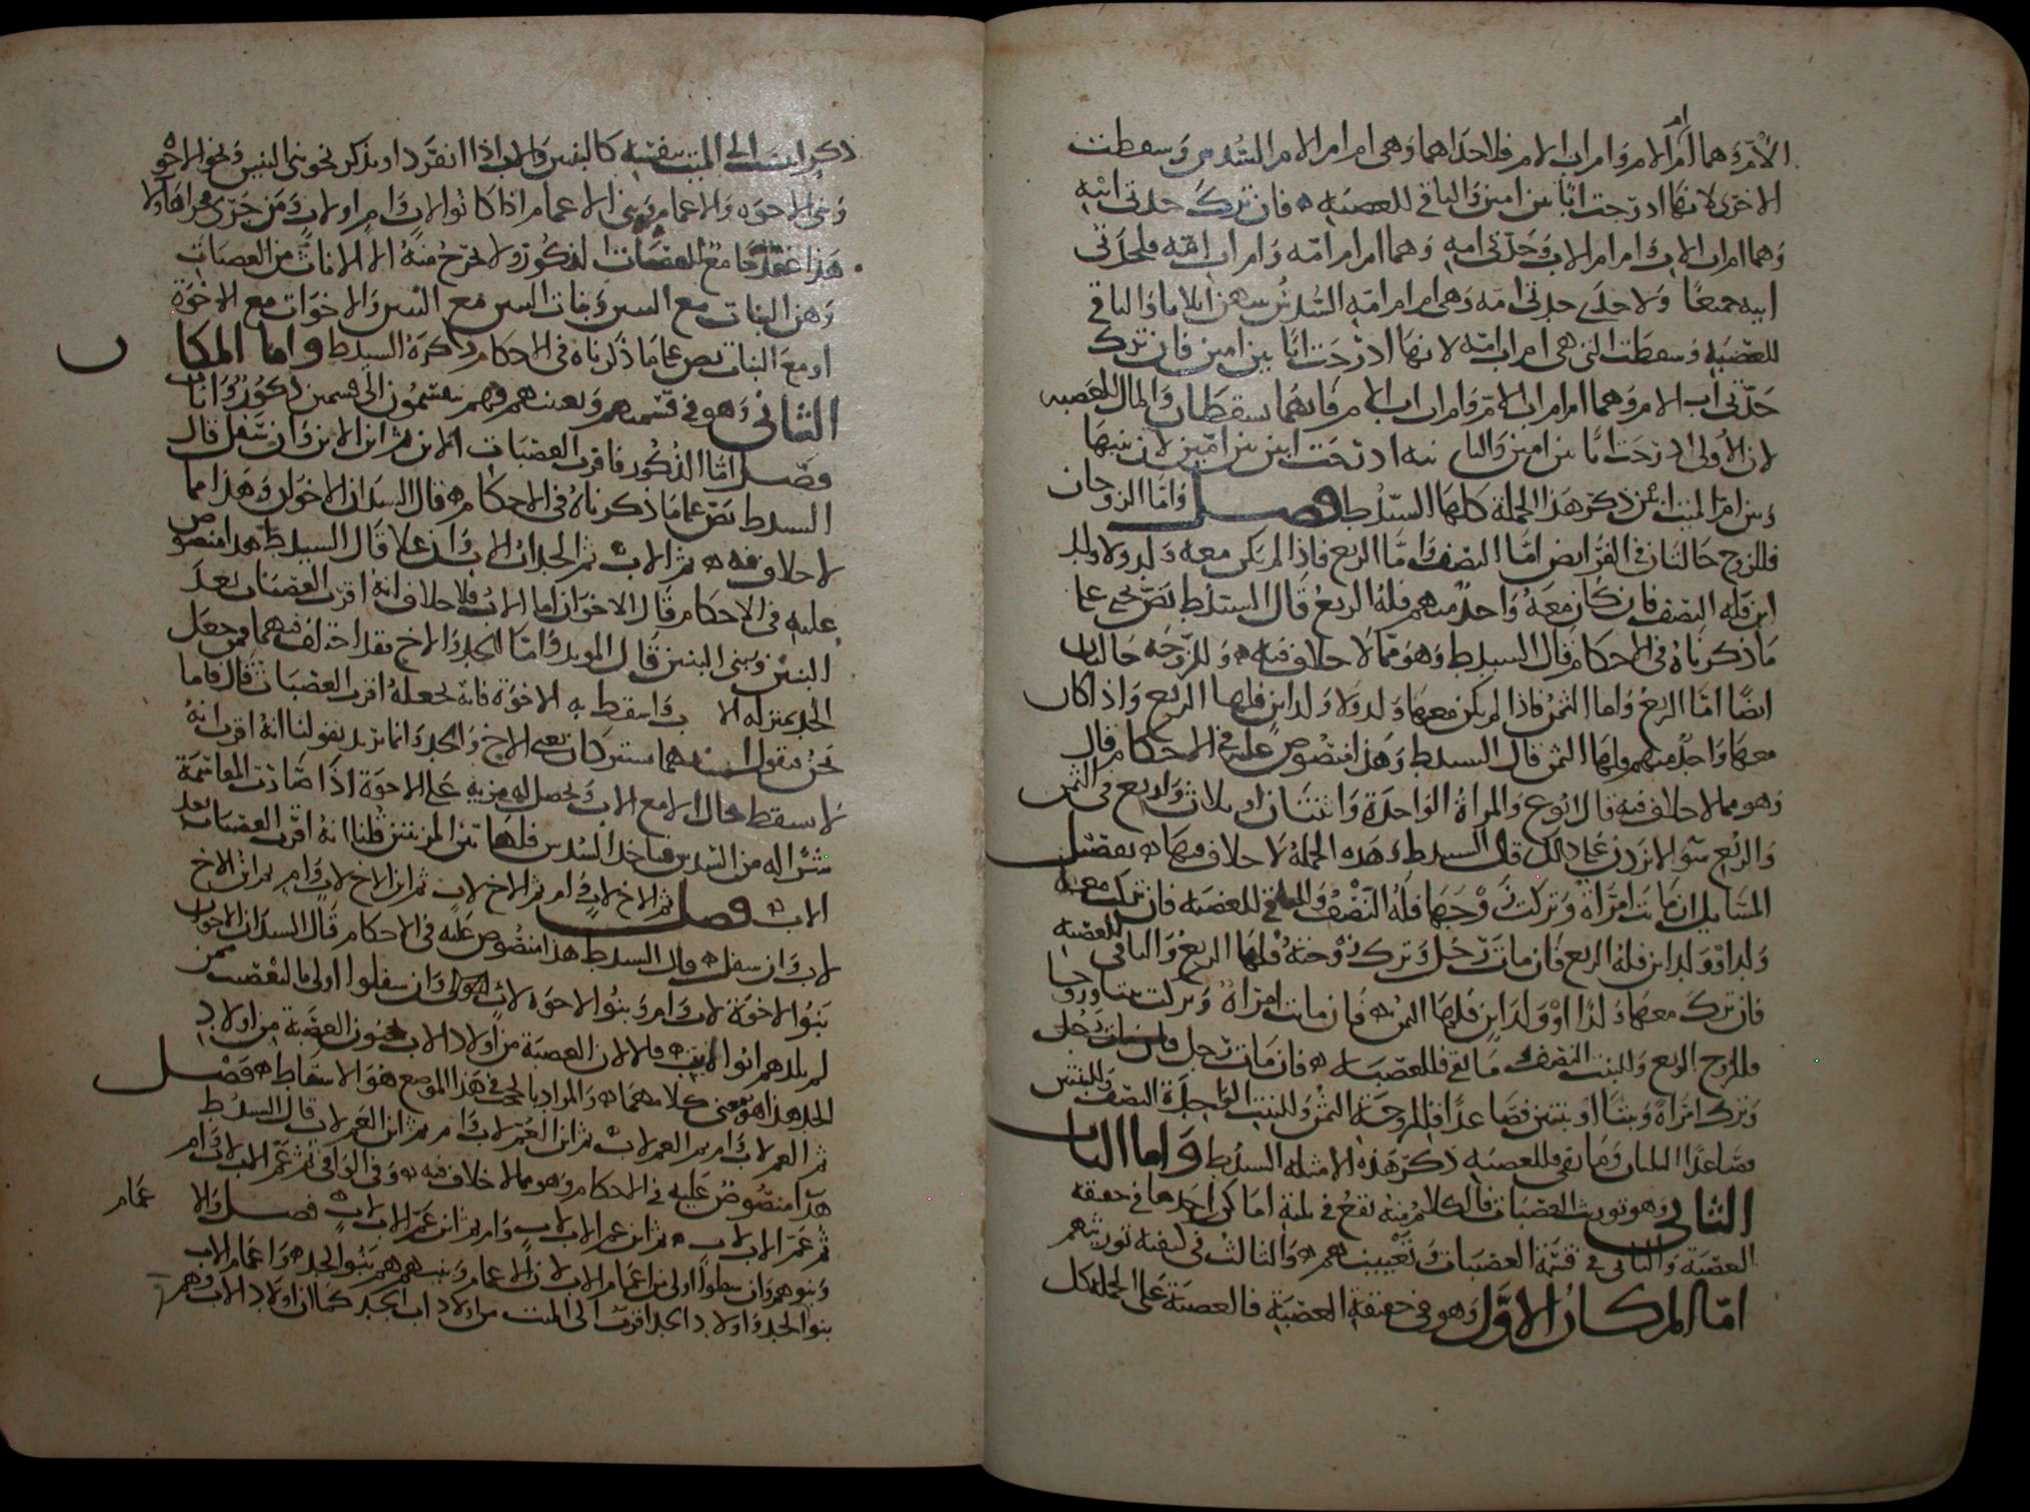 الأم وهما أم أم الام وام اب الام فلاحداهما وهى ام ام الام السدس وسقطت
الاخرى لانها ادرجت ابًا بين امين والباقى للعصبه فان ترك جدتى ابيه
وهما ام اب الاب وام ام الاب وجدتى امه وهما ام ام امه وام اب امه فلجدتى
ابيه جميعًا ولاحدى جدتى امه وهى ام ام امه السدس بينهن اثلاثا والباقى
للعصبه وسقطت التى هى ام اب امه لانها ادرجت ابًا بين امين فان ترك
جدتى اب الام وهما ام ام اب الام وام اب اب الام فانهما يسقطان والمال للعصبه
لان الأولى ادرجت ابًا بين امين والثانيه ادرجت ابين بين امين لان بينها
وبين ام الميت ابين ذكر هذه الجملة كلها السيد ط فصل واما الزوجان
فللزوج حالتان فى الفرايض اما النصف واما الربع فاذا لم يكن معه ولد ولا ولد
ابن فله النصف فان كان معه واحد منهم فله الربع قال السيد ط نص يحيى على
ما ذكرناه فى الاحكام قال السيد ط وهو مما لا خلاف فيه وللزوجه حالتان
ايضًا اما الربع واما الثمن فاذا لم يكن معها ولد ولا ولد ابن فلها الربع واذا كان
معها واحد منهم فلها الثمن قال السيد ط وهذا منصوص عليه فى الاحكام قال
وهو مما لا خلاف فيه قال ابوع والمراة الواحدة واثنتان او ثلاث واربع فى الثمن
والربع سوا لا نزدن على ذلك قال السيد ط وهذه الجملة لا خلاف فيها تفصيل
المسايل ان ماتت امراة وتركت زوجها فله النصف والباقى للعصبه فان تركت معه
ولدا او ولد ابن فله الربع فان مات رجل وترك زوجته فلها الربع والباقى للعصبه
فان ترك معها ولدًا او ولد ابن فلها الثمن فان ماتت امراة وتركت بنتا وزوجا
فللزوج الربع وللبنت النصف وما بقى فللعصبات فان مات رجل
وترك امراةً وبنتًا او بنتين فصاعدًا فللزوجة الثمن وللبنت الواحدة النصف وللبنتين
فصاعدًا الثلثان وما بقى فللعصبه ذكر هذه الامثله السيد ط واما الباب
الثانى وهو توريث العصبات فالكلام منه يقع فى ثلثة اماكن احدها فى حقيقة
العصبة والثانى فى قسمة العصبات وتعيينهم والثالث فى كيفية توريثهم
امّا المكان الاوّل وهو فى حقيقة العصبة فالعصبة على الجملة كل
ذكر انتسب الى الميت بنفسه كالبنين والاب اذا انفرد او بذكر نحو بنى البنين ونحو الاخوه
وبنى الاخوه والاعمام وبنى الاعمام اذا كانوا لاب وام او لاب ومن جرى مجراهم ولا
هذا عقد جامع للعصبات الذكور ولا تخرج منه الا الاناث من العصبات
وهن البنات مع البنين وبنات البنين مع البنين والاخوات مع الاخوة
او مع البنات نص على ما ذكرناه فى الاحكام ذكره السيد ط واما المكان
الثانى وهو فى قسمتهم وتعيينهم فهم ينقسمون الى قسمين ذكور واناث
فصل اما الذكور فاقرب العصبات الابن ثم ابن الابن وان سفل قال
السيد ط نص على ما ذكرناه فى الاحكام قال السيدان الاخوان وهذا مما
لا خلاف فيه ثم الاب ثم الجد اب الاب وان علا قال السيد ط هذا منصوص
عليه فى الاحكام قال الاخوان اما الاب فلا خلاف انه اقرب العصبات بعد
البنين وبنى البنين قال المويد واما الجد والاخ فقد اختلف فيهما فمن جعل
الجد بمنزله الاب واسقط به الاخوة فانه يجعله اقرب العصبات قال فاما
نحن فنقول انهما مشتركان يعنى الاخ والجد وانما نريد بقولنا انه اقرب انه
لا يسقط بحال الا مع الاب ويحصل له مزيه على الاخوة اذا صارت المقاسمة
شرًا له من السدس فياخذ السدس فلهاتين المزيتين قلنا انه اقرب العصبات بعد
الاب فصل ثم الاخ لاب وام ثم الاخ لاب ثم ابن الاخ لاب وام ثم ابن الاخ
لاب وان سفل قال السيد ط هذا منصوص عليه فى الاحكام قال السيدان الاخوان
بنوا الاخوة لاب وام وبنوا الاخوه لاب وان سفلوا اولى بالتعصيب ممن
لم يلدهم ابوا الميت قالا لان العصبة من اولاد الاب يحجبون العصبة من اولاد
الجد هذا هو معنى كلامهما والمراد بالحجب فى هذا الموضع هو الاسقاط فصل
ثم العم لاب وام ثم العم لاب ثم ابن العم لاب وام ثم ابن العم لاب قال السيد ط
هذا منصوص عليه فى الاحكام وهو مما لا خلاف فيه وفى الوافى ثم عم الاب لاب وام
ثم عم الاب لاب ثم ابن عم الاب لاب وام ثم ابن عم الاب لاب فصل والاعمام
وبنوهم وان سفلوا اولى من اعمام الاب لان الاعمام وبنيهم هم بنو الجد واعمام الاب
بنوا الجد واولاد الجد اقرب الى الميت من اولاد اب الجد كما ان اولاد الاب وهم